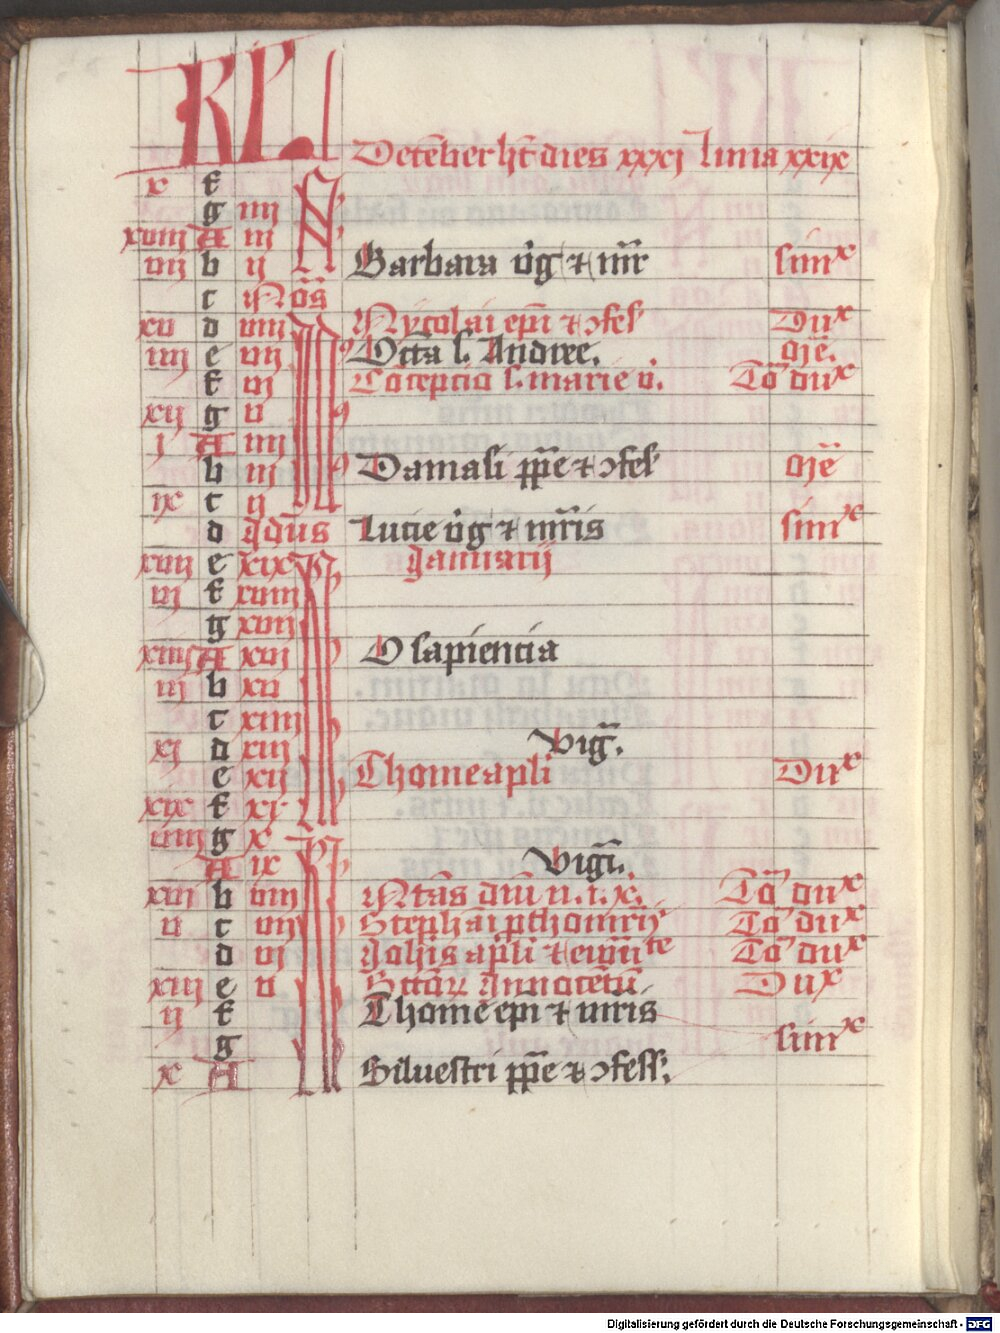 KL
Decēber ht̄ dies xxxj luna xxix
x f
g iiij N
xviij A iij
vij b ij Barbara v̄g ⁊ mr̄ simˣ
c Nōs
xv d viij Nycolai ep̄i ⁊ ꝯfes Duˣ
iiij e vij Octā s. Andree. oīe.
f vj Cōcepcio s. marie v. Tō duˣ
xij g v
j A iiij
b iij Damasi pp̄e ⁊ ꝯfes oīe
ix c ij
d Jdus Lucie v̄g ⁊ mr̄is simˣ
xvij e xix Januarij
vj f xviij
g xvij
xiiij A xvj O sapiencia
iij b xv
c xiiij
xj d xiij viḡ.
e xij Thome apl̄i Duˣ
xix f xj
viij g x
A ix vigl̄.
xvj b viij Nt̄as dn̄i n. i. x. Tō duˣ
v c vij Stephāi pthomr̄ij Tō duˣ
d vj Joh̄is apl̄i ⁊ ewāte Tō duˣ
xiij e v Sctōꝝ Innocētū Duˣ
ij f Thome ep̄i ⁊ mr̄is simˣ
g
x A Siluestri pp̄e ⁊ ꝯfess.
Digitalisierung gefördert durch die Deutsche Forschungsgemeinschaft - DFG